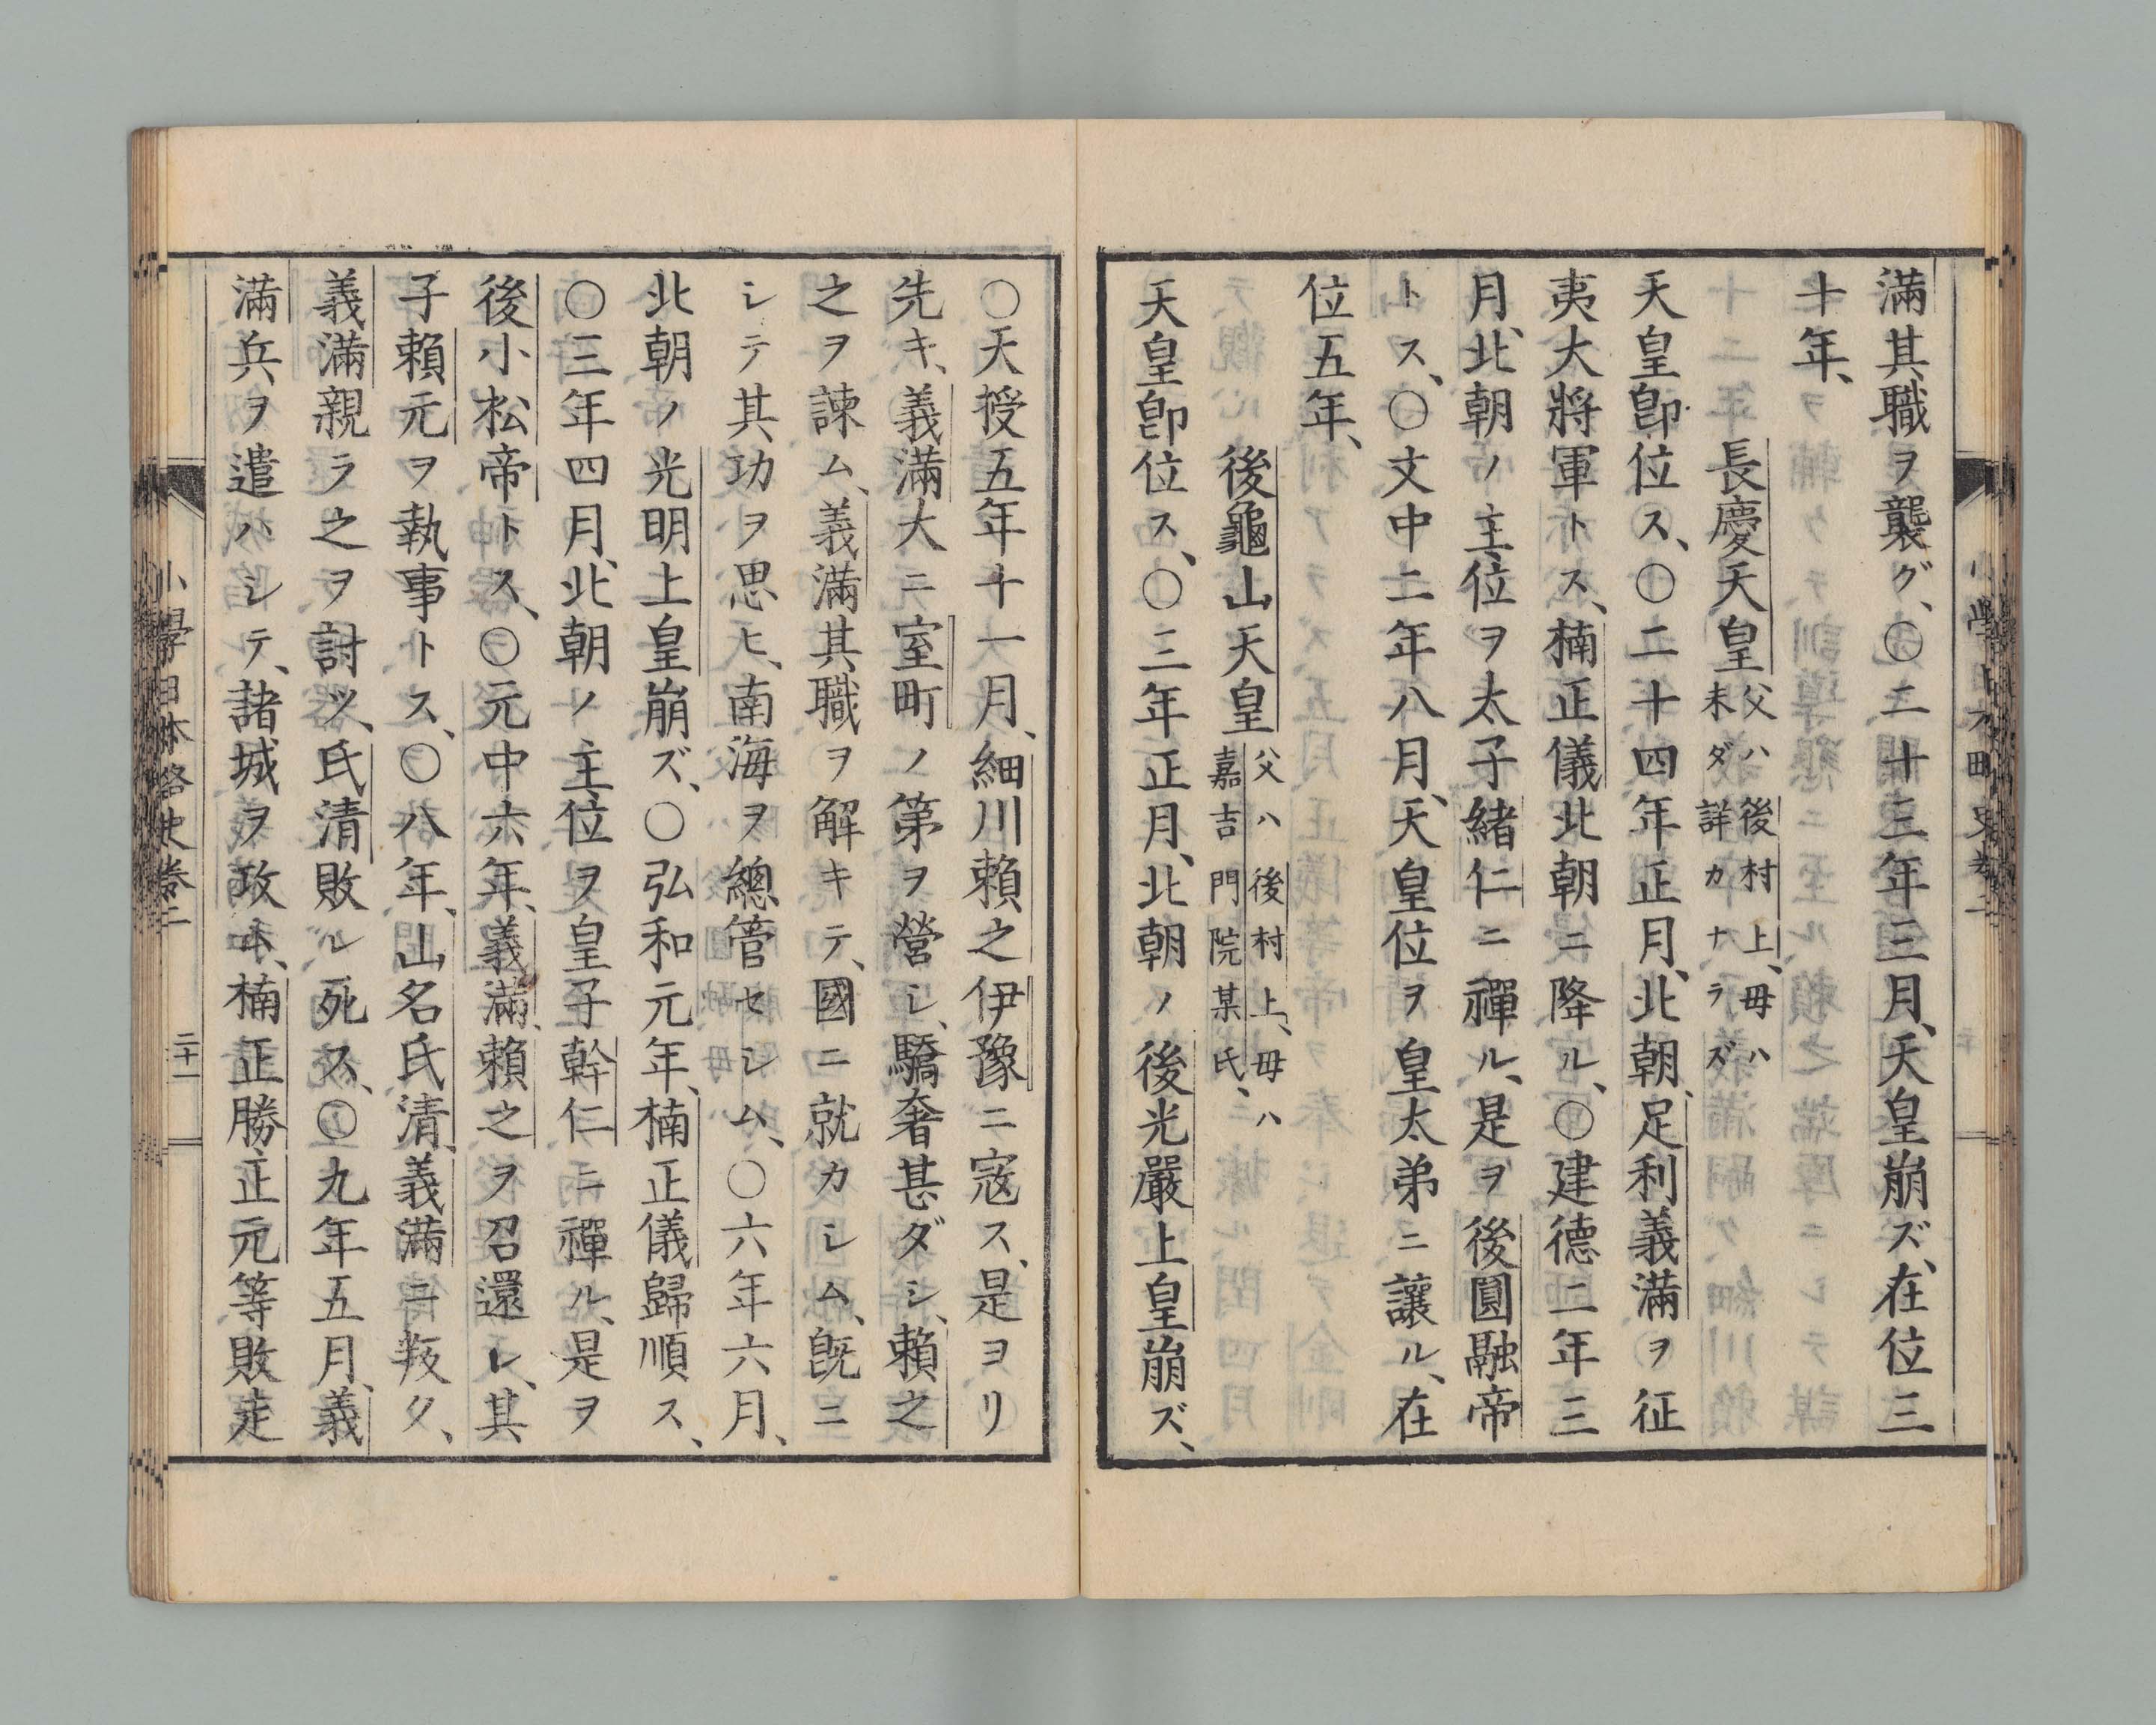 滿其職ヲ襲グ、〇二十三年三月、天皇崩ズ、在位三
十年、
長慶天皇父ハ後村上、母ハ
未ダ詳カナラズ
天皇卽位ス、〇二十四年正月、北朝、足利義滿ヲ征
夷大將軍トス、楠正儀北朝ニ降ル、〇建德二年三
月、北朝ノ主位ヲ太子緖仁ニ禪ル、是ヲ後圓融帝
トス、〇文中二年八月、天皇位ヲ皇太弟ニ讓ル、在
位五年、
後龜山天皇父ハ後村上、母ハ
嘉吉門院某氏、
天皇卽位ス、〇三年正月、北朝ノ後光嚴上皇崩ズ、
〇天授五年十一月、細川賴之伊豫ニ寇ス、是ヨリ
先キ、義滿大ニ室町ノ第ヲ營シ、驕奢甚ダシ、賴之
之ヲ諫ム、義滿其職ヲ解キテ、國ニ就カシム、旣ニ
シテ其功ヲ思ヒ、南海ヲ總管セシム、〇六年六月、
北朝ノ光明上皇崩ズ、〇弘和元年、楠正儀歸順ス、
〇三年四月、北朝ノ主位ヲ皇子幹仁ニ禪ル、是ヲ
後小松帝トス、〇元中六年、義滿、賴之ヲ召還シ、其
子賴元ヲ執事トス、〇八年、山名氏淸、義滿ニ叛ク、
義滿親ラ之ヲ討ツ、氏淸敗レ死ス、〇九年五月、義
滿兵ヲ遣ハシテ、諸城ヲ攻ム、楠正勝正元等敗走
小學日本略史卷二
二十一